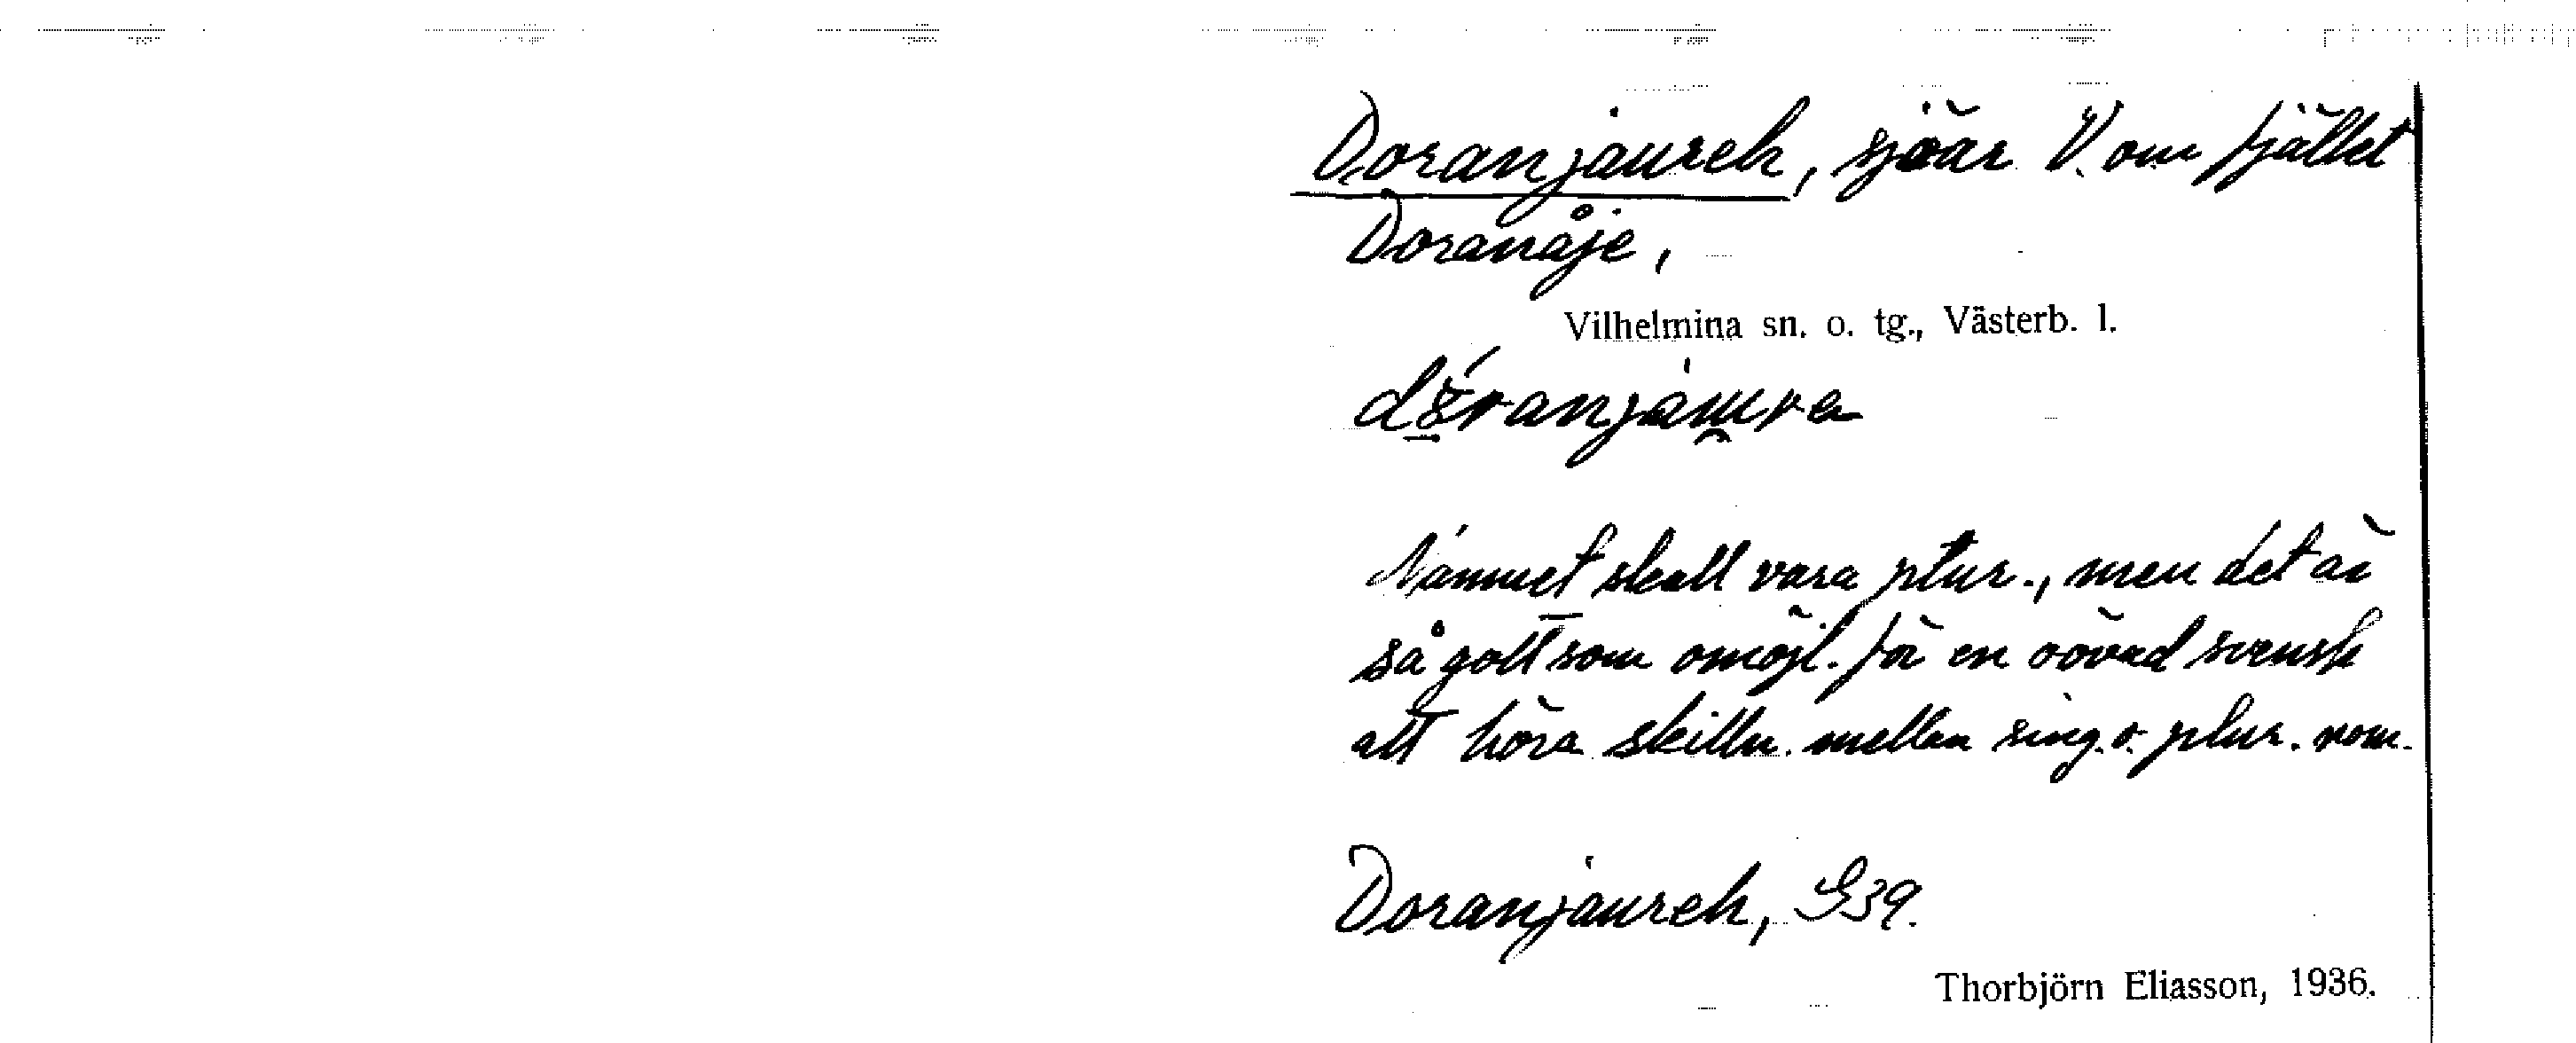 Doranjaureh, sjöar V. om fjället
Doranåje,
Vilhelmina sn. o. tg., Västerb. l.
Namnet skall vara plur., men det är
så gott som omöjl. för en oövad svensk
att höra skilln. mellan sing. o. plur. nom.
Doranjaureh, G39.
Thorbjörn Eliasson, 1936.